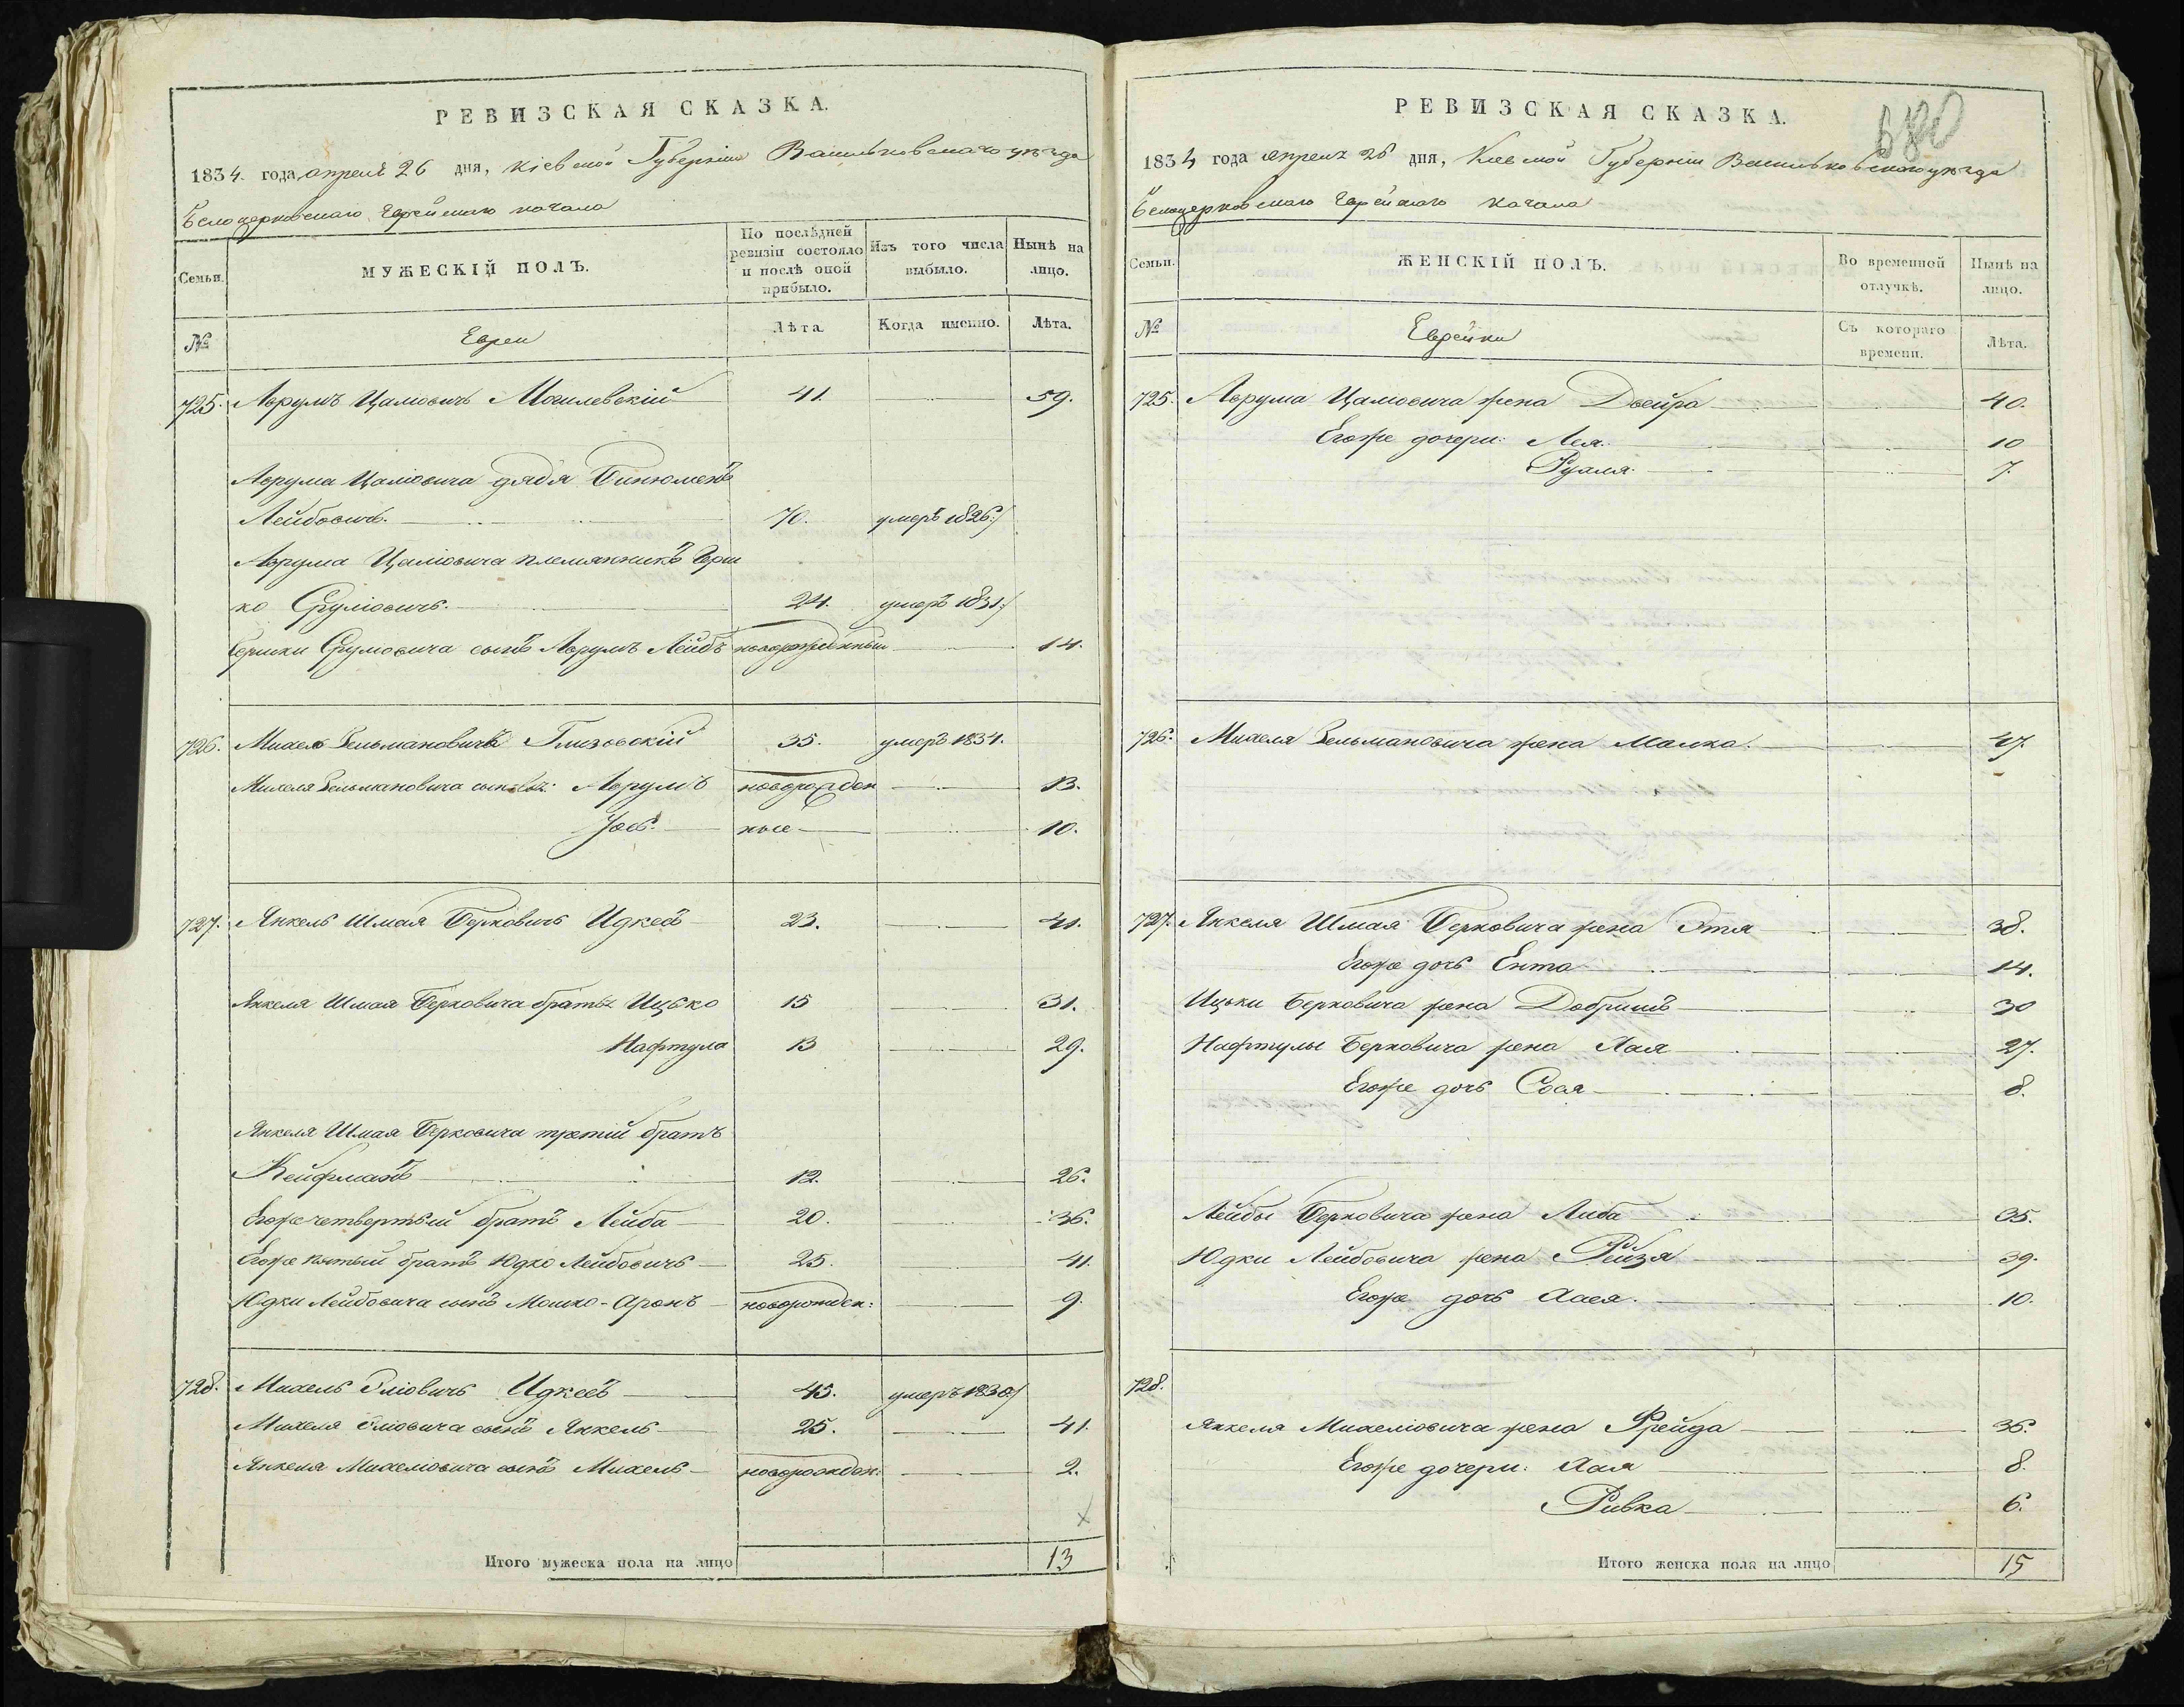 РЕВИЗСКАЯ СКАЗКА.
1834 года апреля 26 дня, Кіевской Губерніи Васильковскаго уезда
Белоцерковскаго Еврейскаго кагала
Семьи.
МУЖЕСКІЙ ПОЛЪ.
По послѣдней ревизіи состояло и послѣ оной прибыло.
Изъ того числа выбыло.
Нынѣ на лицо.
№
Евреи
Лѣта
Когда именно.
Лѣта.
725. Аврумъ Цаліовичъ Могилевскій 41. 59.
Аврума Цаліовича дядя Бинюменъ
Лейбовичъ. 70. умеръ 1826:/
Аврума Цаліовича племянникъ Герш
ко Сруліовичъ. 24. умеръ 1831:/
Гершки Сруліовича сынъ Аврумъ Лейбъ новорожденный 14.
726. Михель Зельмановичъ Глизовскій 35. умеръ 1831.
Михеля Зельмановича сыновья: Аврумъ новорожден 13.
Іосъ. ные 10.
727. Янкель Шмая Берковичъ Идкесъ 23. 41.
Янкеля Шмая Берковича братья Ицько 15 31.
Нафтула 13 29.
Янкеля Шмая Берковича третій братъ
Кейфманъ 12. 26.
Егоже четвертый братъ Лейба 20. 36.
Егоже пятый братъ Юдко Лейбовичъ 25. 41.
Юдки Лейбовича сынъ Мошко-Аронъ новорожден: 9.
728. Михель Эліовичъ Идкесъ 45. умеръ 1830:/
Михеля Эліовича сынъ Янкель 25. 41.
Янкеля Михеліовича сынъ Михель новорожден: 2.
Итого мужеска пола на лицо 13
РЕВИЗСКАЯ СКАЗКА.
1834 года апреля 26 дня, Киевской Губерніи Васильковскаго уезда
Белоцерковскаго Еврейскаго кагала
Семьи.
ЖЕНСКІЙ ПОЛЪ.
Во временной отлучкѣ.
Нынѣ на лицо.
№
Еврейки
Съ котораго времени.
Лѣта.
725. Аврума Цаліовича жена Двейра 40.
Егоже дочери: Лея. 10
Рухля. 7.
726. Михеля Зельмановича жена Малка. 47.
727. Янкеля Шмая Берковича жена Этя 38.
Егоже дочь Ента 14.
Ицьки Берковича жена Добришъ 30
Нафтулы Берковича жена Хая 27.
Егоже дочь Сося 8.
Лейбы Берковича жена Либа 35.
Юдки Лейбовича жена Рейзя 39.
Егоже дочь Хася. 10.
728.
Янкеля Михеліовича жена Фрейда 36.
Егоже дочери: Хая 8.
Ривка 6.
Итого женска пола на лицо 15